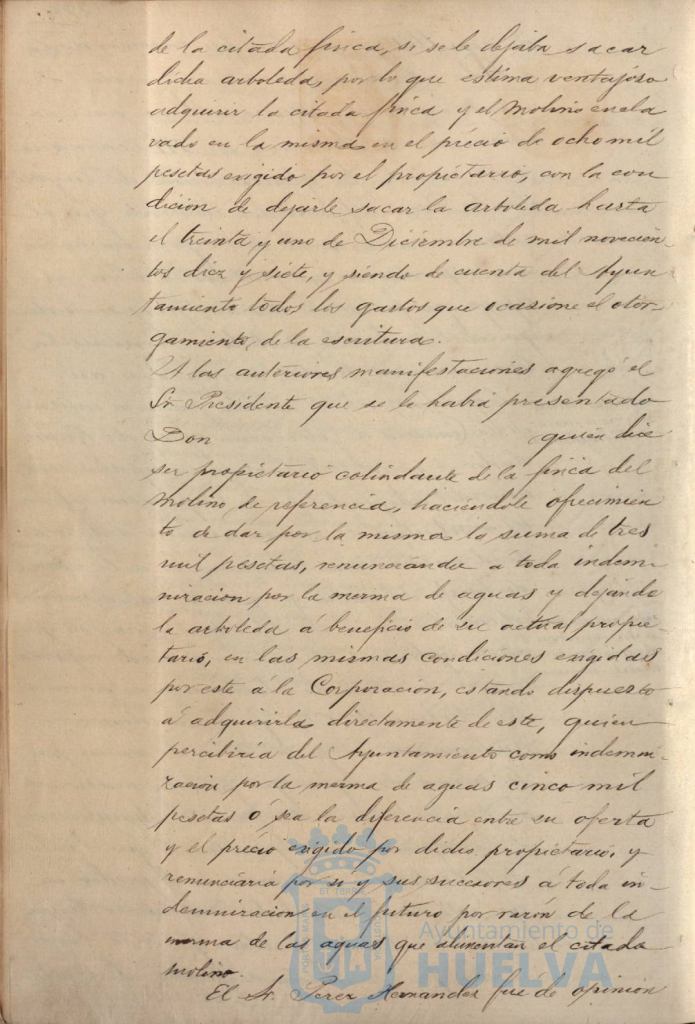 de la citada finca, si se le dejaba sacar
dicha arboleda, por lo que estima ventajoso
adquirir la citada finca y el molino encla
vado en la misma en el precio de ocho mil
pesetas exigido por el propietario, con la con
dicion de dejarle sacar la arboleda hasta
el treinta y uno de Diciembre de mil novecien-
tos diez y siete, y siendo de cuenta del Ayun
tamiento todos los gastos que ocasione el otor-
gamiento de la escritura.
A las anteriores manifestaciones agregó el
Sr. Presidente que se le habia presentado
Don quien dice
ser propietario colindante de la finca del
molino de referencia, haciéndole ofrecimien
to de dar por la misma la suma de tres
mil pesetas, renunciando á toda indem-
nizacion por la merma de aguas y dejando
la arboleda á beneficio de su actual propie-
tario, en las mismas condiciones exigidas
por este á la Corporacion, estando dispuesto
á adquirirla directamente de este, quien
percibiria del Ayuntamiento como indemni-
zacion por la merma de aguas cinco mil
pesetas ó sea la diferencia entre su oferta
y el precio exigido por dicho propietario, y
renunciaria por si y sus sucesores á toda in-
demnizacion en el futuro por razón de la
merma de las aguas que alimentan el citado
molino.
El Sr. Perez Hernandez fué de opinión
Ayuntamiento de
HUELVA